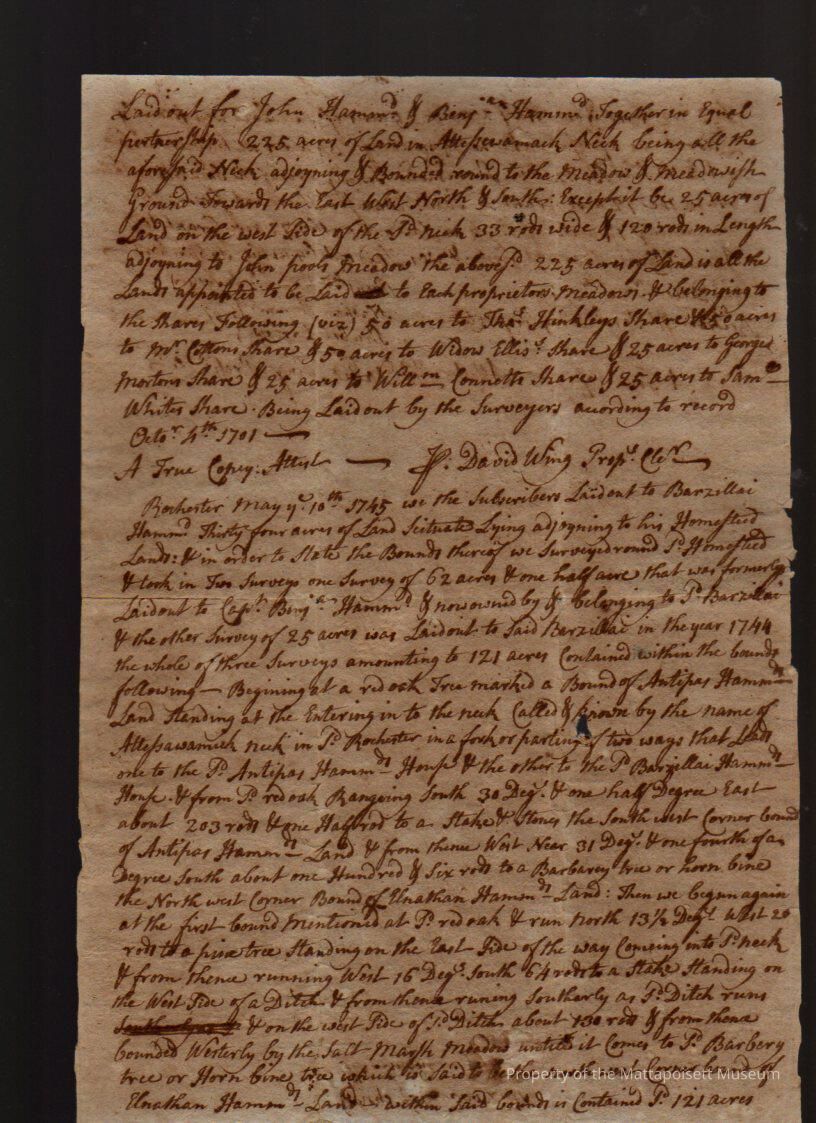 Laid out for John Hammd & Benja Hammd Together in Equal
partnership 225 acres of Land in Attesewamack Neck being all the
aforesaid Neck adjoyning & Bounded round to the meadow & meadowish
Ground Towards the East West North & South: Except it be 25 acres of
Land on the west Side of the Sd neck 33 rods wide & 120 rods in Length
adjoyning to John pools meadow the aboveSd 225 acres of Land is all the
Lands appointed to be Laid to Each proprietors meadows & belonging to
the shares Following (viz) 50 acres to Thos Hinkleys Share & 50 acres
to Mr Cottons Share & 50 acres to Widow Elliss Share & 25 acres to George
Mortons Share & 25 acres to Willm Connetts Share & 25 acres to Samll
Whites Share: Being Laid out by the Surveyers according to record
Octor 4th 1701
A True Copey: Attest — Pr David Wing Propr Clerk
Rochester May ye 10th 1745 we the Subscribers Laid out to Barzillai
Hammd Thirty four acres of Land Scituated Lying adjoyning to his Homested
Lands: & in order to State the Bounds thereof we Surveyed round Sd Homested
& took in Two Surveys one Survey of 62 acres & one half acre that was formerly
Laid out to Capt Benja Hammd & now owned by & belonging to Sd Barzillai
& the other Survey of 25 acres was Laid out to Said Barzillai in the year 1744
the whole of three Surveys amounting to 121 acres Contained within the bounds
following — Begining at a red oak Tree marked a Bound of Antipas Hammds
Land Standing at the Entering in to the neck Called & known by the name of
Attesawamick neck in Sd Rochester in a fork or parting of two ways that Leads
one to the Sd Antipas Hammds House & the other to the Sd Barzillai Hammds
House & from Sd red oak Rangeing South 30 Degs & one half Degree East
about 203 rods & one Half rod to a Stake & Stones the South west Corner bound
of Antipas Hammds Land & from thence West Near 31 Degs & one fourth of a
Degree South about one Hundred & Six rods to a Barbarey tree or horn bine
the North west Corner Bound of Elnathan Hammds Land: Then we begun again
at the first bound mentioned at Sd red oak & run north 13½ Degs West 20
rods to a pine tree Standing on the East Side of the way Comeing into Sd neck
& from thence running West 16 Degs South 64 rods to a Stake Standing on
the West Side of a Ditch & from thence runing Southerly as Sd Ditch runs
& on the west Side of Sd Ditch about 130 rods & from thence
bounded Westerly by the Salt Marsh Meadow untill it Comes to Sd Barbery
tree or Horn bine tree which is Said to be the north west Corner bound of
Elnathan Hammds Land within Said bounds is Contained Sd 121 acres
Property of the Mattapoisett Museum